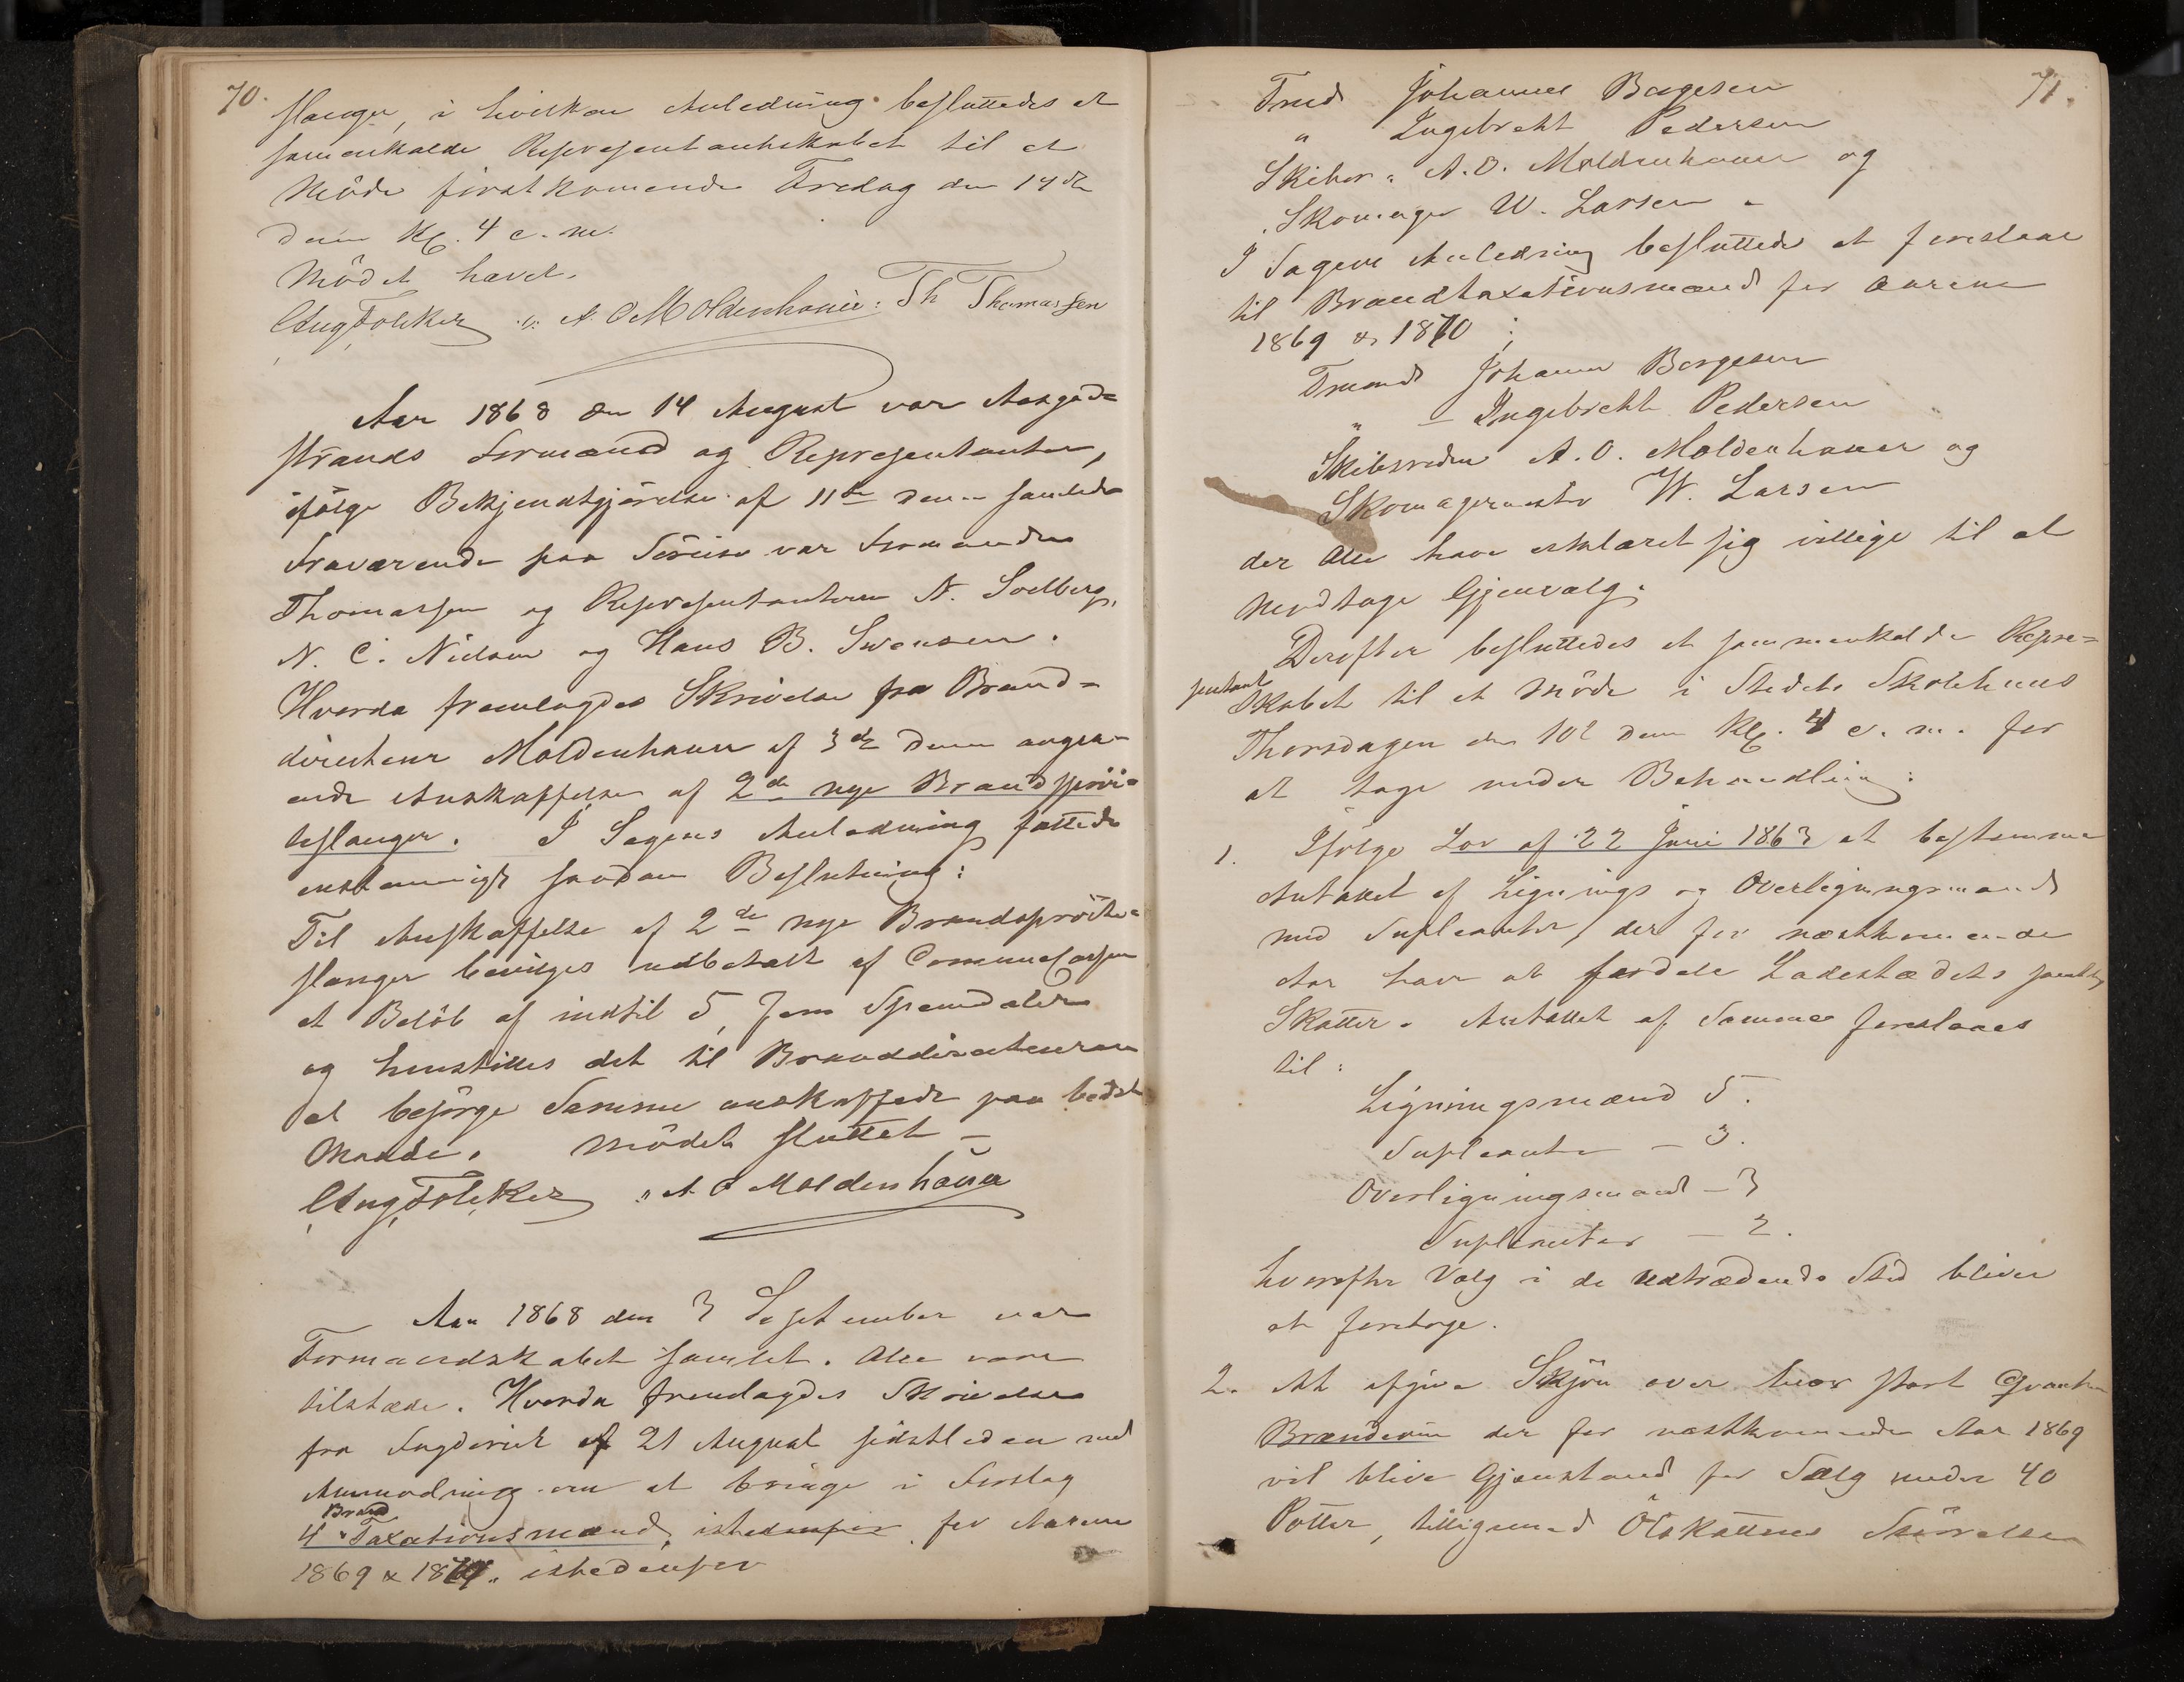 70.
slanger, i hvilken Anledning besluttedes at
samenkalde Representantskabet til et
Möde førstkomende Fredag den 14de
dens Kl. 4 e. m.
Mödet hævet.
Aug Foleker A. O. Moldenhauer Th Thomassen
Aar 1868 den 14 August var Aasgaard-
strands Formænd og Representanter,
ifölge Bekjendtgjörelse af 11te dens samlede
Fraværende paa Söreise var Formanden
Thomassen og Representanterne N. Soelberg,
N. C. Nielsen og Hans B. Svensen.
Hvorda fremlagdes Skrivelse fra Brand-
directeur Moldenhauer af 3de dens angaa-
ende Anskaffelse af 2de nye Brandspröi-
teslanger. I Sagens Anledning fattede
enstemmigt saadan Beslutning:
Til Anskaffelse af 2de nye Brandspröite-
slanger bevilges udbetalt af Communecassen
et Belöb af indtil 5, Fem Speciedaler
og henstilles det til Branddirecteuren
at besörge Samme anskaffede paa bedste
Maade. Mödet sluttet —
Aug Foleker A O Moldenhauer
Aar 1868 den 3 September var
Formandskabet samlet. Alle vare
tilstæde. Hvorda fremlagdes Skrivelse
fra Fogderiet af 21 August sidstleden med
Anmodning om at bringe i Forslag
Brand
4 Taxationsmænd, istedenfor for Aarene
1869 & 1870. istedenfor
71.
Tmd Johannes Borgesen
" Ingebrekt Pedersen
Skibsr. A. O. Moldenhauer og
Skomager W. Larsen -
I Sagens Anledning besluttedes at foreslaae
til Brandtaxationsmænd for Aarene
1869 & 1870;
Tmand Johannes Borgesen
" — Ingebrekt Pedersen
Skibsreder A. O. Moldenhauer og
Skomagermester W. Larsen
der Alle have erklæret sig villige til at
modtage Gjenvalg.
Derefter besluttedes at sammenkalde Repre=
sentant
skabet til et Möde i Stedets Skolehuus
Thorsdagen den 10de dens Kl. 4 e. m. for
at tage under Behandling:
1. Ifölge Lov af 22 Juni 1863 at bestemme
Antallet af Lignings og Overligningsmænd
med Supleanter, der for næstkommende
Aar have at fordele Ladestædets samtlige
Skatter. Antallet af Samme foreslaaes
til:
Ligningsmænd 5.
Supleanter — 3.
Overligningsmænd — 3
Supleanter — 2.
hvorefter Valg i de Udtrædendes Sted bliver
at foretage.
2. At afgive Skjön over hvor stort Qvantum
Brændeviin der for næstkommende Aar 1869
vil blive Gjenstand for Salg under 40
Potter, tilligemed Ölskattens Störrelse